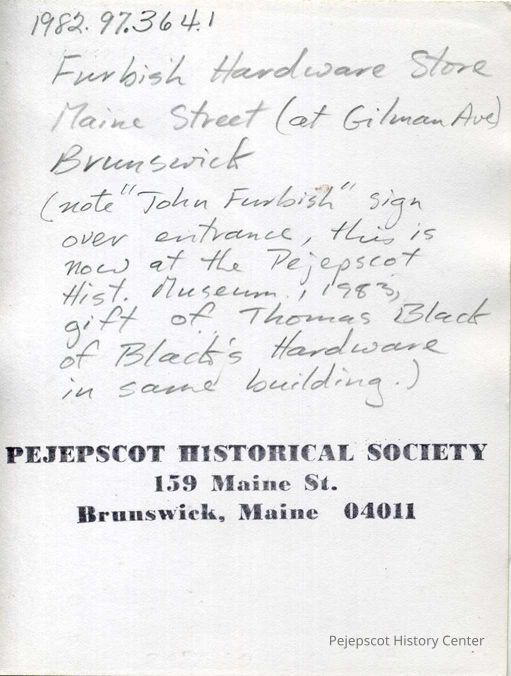 1982.97.364.1
Furbish Hardware Store
Maine Street (at Gilman Ave)
Brunswick
(note "John Furbish" sign
over entrance, this is
now at the Pejepscot
Hist. Museum, 1983,
gift of Thomas Black
of Black's Hardware
in same building.)
PEJEPSCOT HISTORICAL SOCIETY
159 Maine St.
Brunswick, Maine 04011
Pejepscot History Center